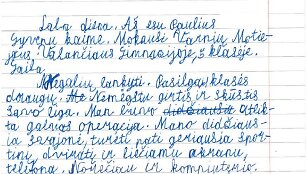 Laba diena. Aš esu Paulius
Gyvenu kaime. Mokausi Varnių Motie-
jaus Valančiaus Gimnazijoje, 3 klasėje.
Negaliu lankyti. Pasiilgau klasės
draugų. Nemėgstu girtis ir skųstis
savo liga. Man buvo atlik-
ta galvos operacija. Mano didžiaus-
ia svajonė, turėti patį geriausią spor-
tinį dviratį ir liečiamu ekranu,
telefoną. Norėčiau ir kompiuterio.